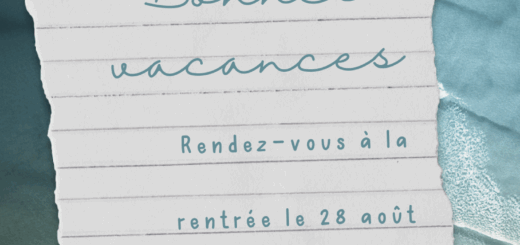 Bonnes
vacances
Rendez-vous à la
rentrée le 28 août